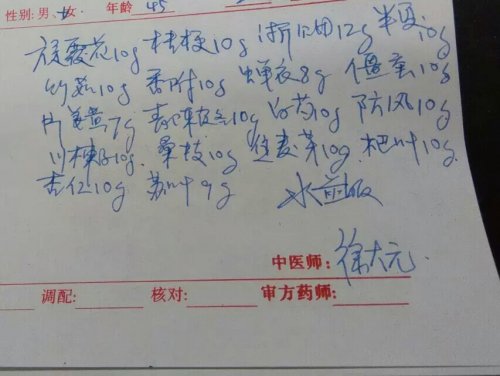 性别:男、女 年龄 45
旋覆花10g 桔梗10g 浙贝母12g 半夏10g
竹茹10g 香附10g 蝉衣8g 僵蚕10g
10g 白芍10g 防风10g
川楝子10g. 桑枝10g 生麦芽10g. 杷叶10g.
杏仁10g 苏叶9g 水煎服
中医师: 徐大元
调配: 核对: 审方药师: